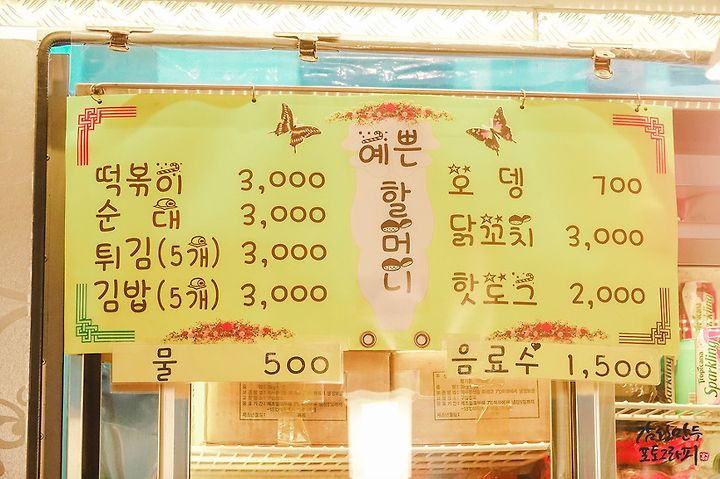 예쁜 할머니
떡볶이 3,000
순대 3,000
튀김(5개) 3,000
김밥(5개) 3,000
오뎅 700
닭꼬치 3,000
핫도그 2,000
물 500
음료수 1,500
Tropicana
Sparkling
Sparkling
포토그라피